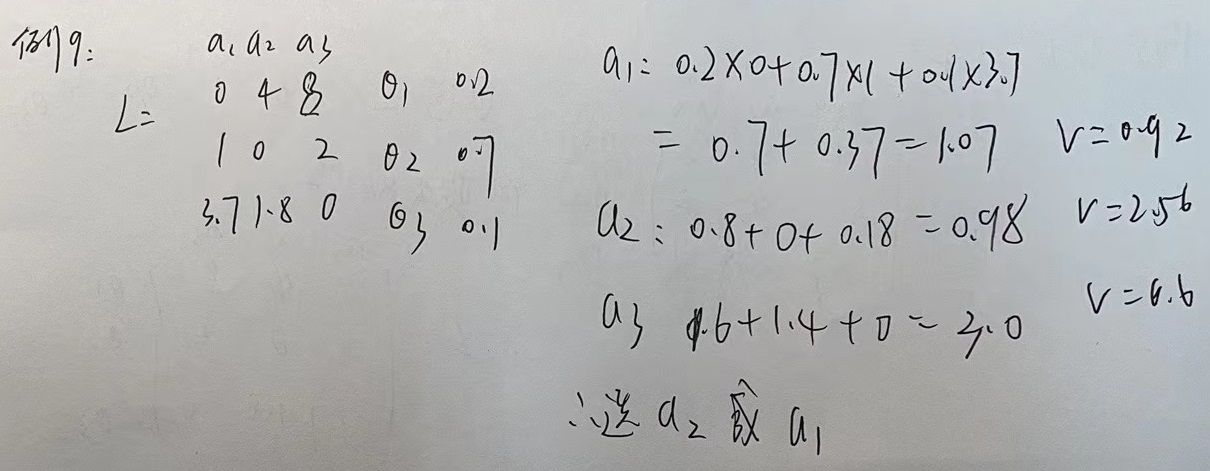 例9:
a₁ a₂ a₃
L=
0 4 8 θ₁ 0.2
1 0 2 θ₂ 0.7
3.7 1.8 0 θ₃ 0.1
a₁: 0.2×0+0.7×1+0.1×3.7
= 0.7+0.37=1.07 V=0.92
a₂: 0.8+0+0.18=0.98 V=2.56
a₃ 1.6+1.4+0=3.0 V=6.6
∴选 a₂ 或 a₁